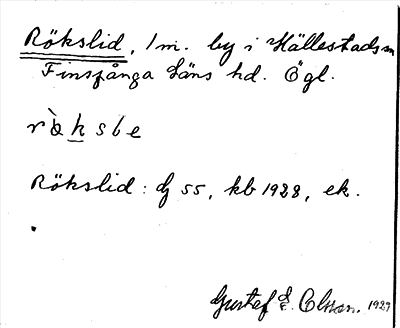 Rökslid, 1 m. by i Hällestads sn
Finspånga Läns hd. Ögl.
Rökslid : dj 55, kb 1928, ek.
Gustaf Olsson. 1929